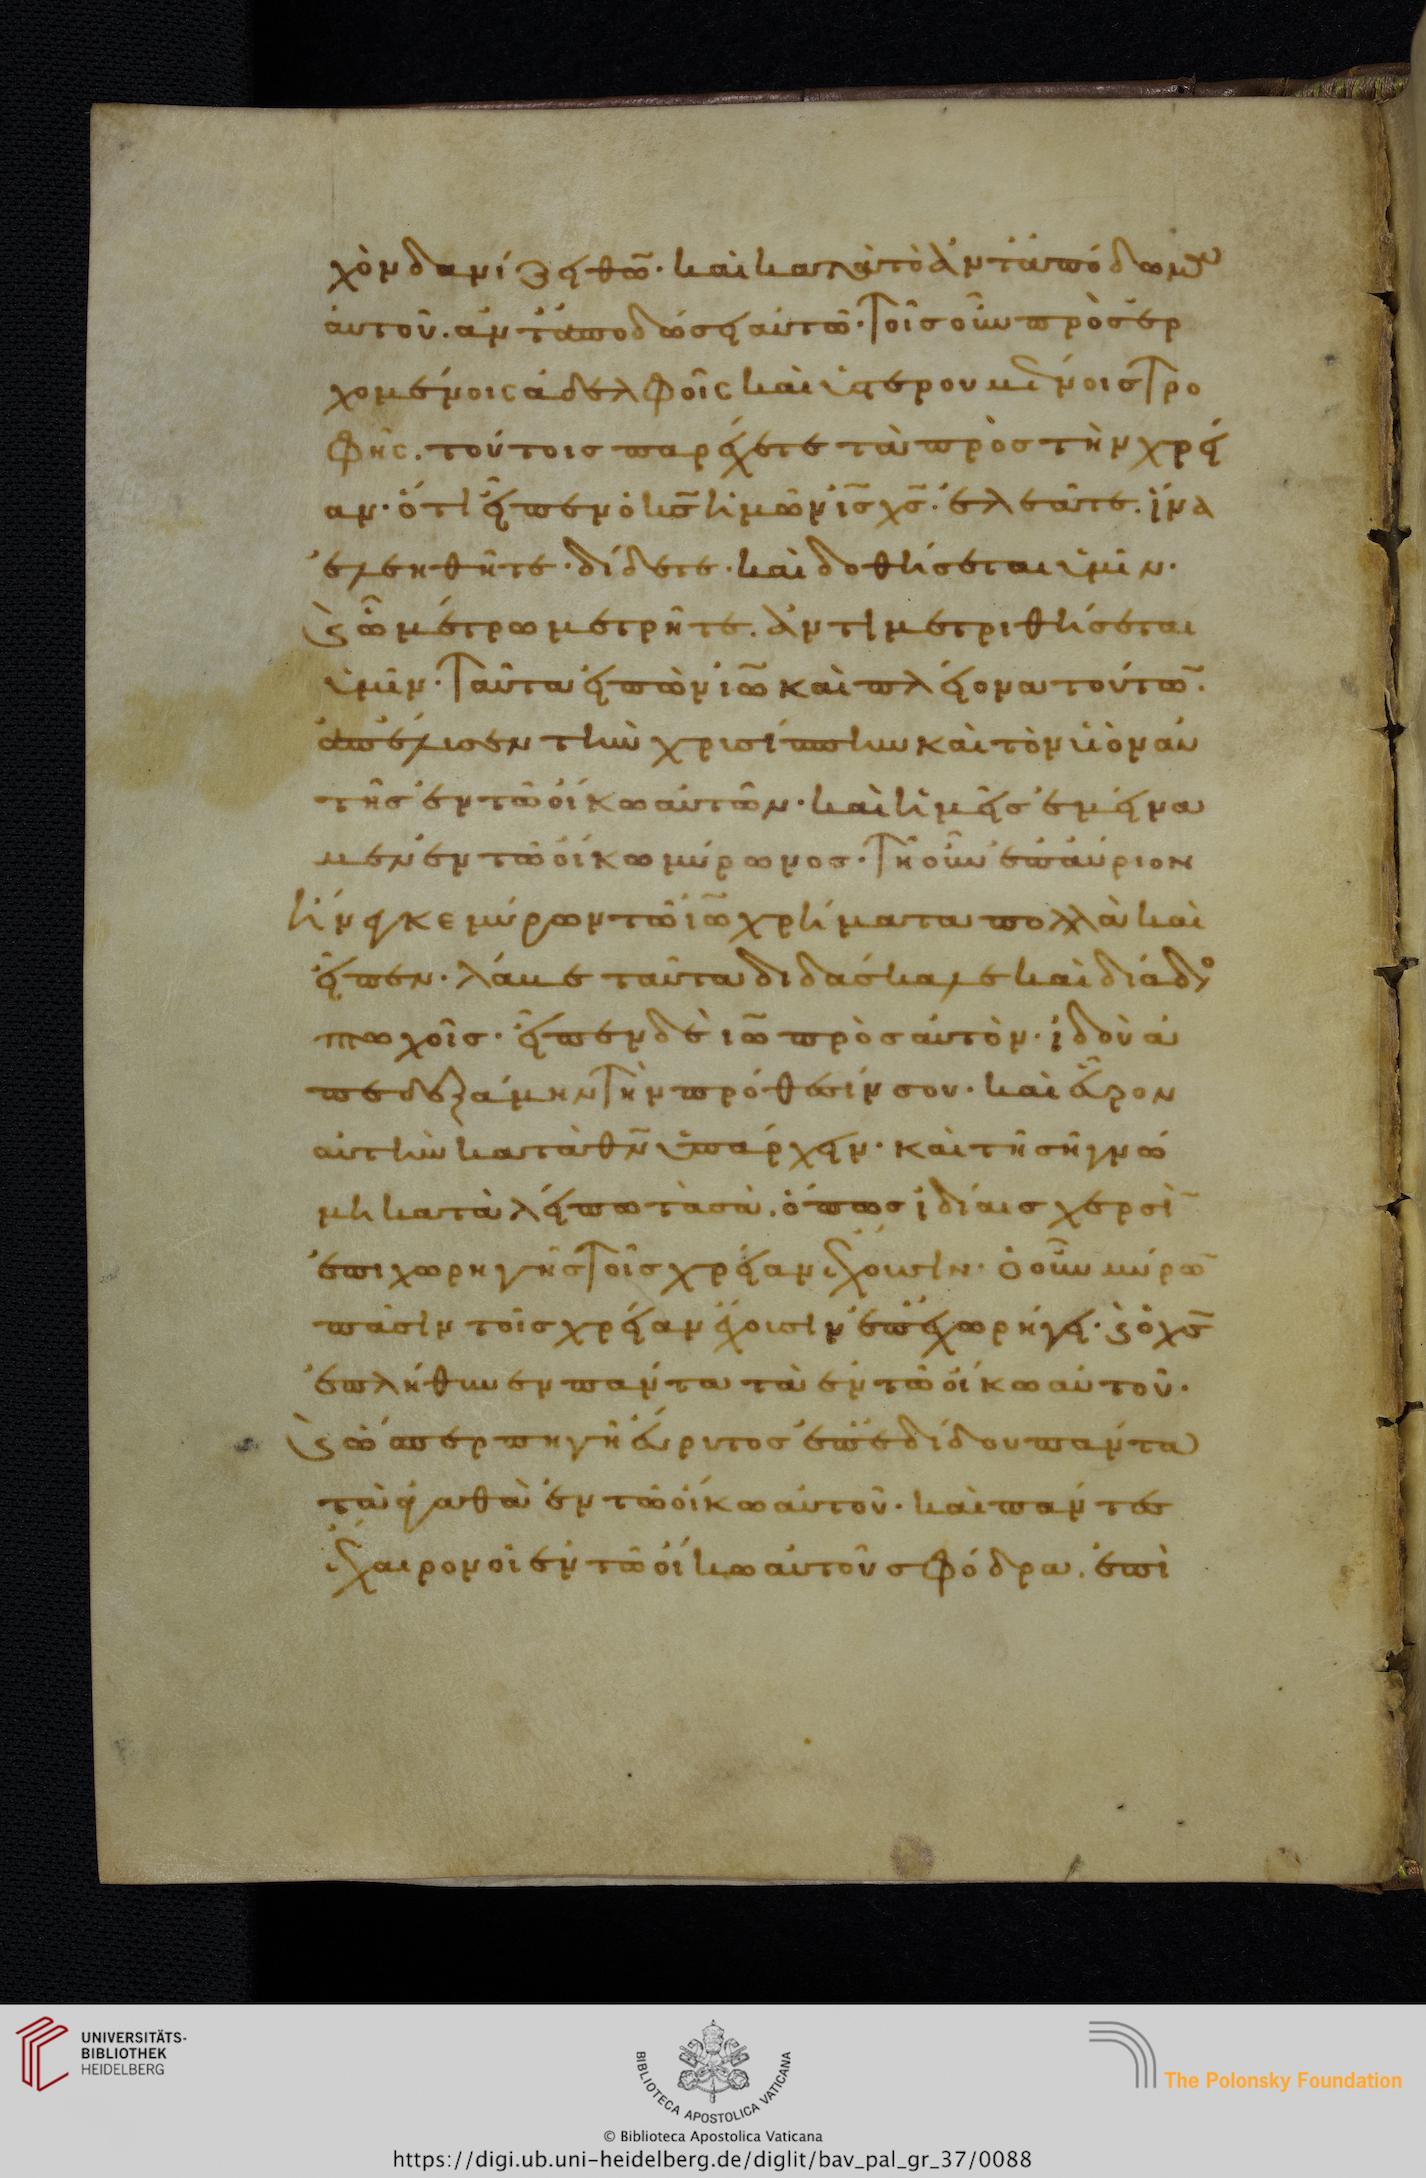 χὸν δανίζει θῶ. καὶ κατὰ τὸ ἀνταπόδωμα
αὐτοῦ. ἀνταποδώσει αὐτῶ. Τοῖς οὖν προσερ
χομένοις ἀδελφοῖς καὶ ὑστερουμένοις τρο
φῆς. τούτοις παρέχετε τὰ πρὸς τὴν χρεί
αν. ὅτι εἶπεν ὁ κς ἡμῶν ις χς. ἐλεᾶτε. ἵνα
ἐλεηθῆτε. δίδετε. καὶ δοθήσεται ὑμῖν.
ϗ ὧ μέτρω μετρῆτε. ἀντιμετριθήσεται
ὑμῖν. Ταῦτα εἰπὼν ἰω καὶ πλείονα τούτω.
ἀπέλυσεν τὴν χρυσίππην καὶ τὸν υἱὸν αὐ
τῆς ἐν τῶ οἴκω αὐτῶν. καὶ ἡμεῖς ἐμείνα
μεν ἐν τῶ οἴκω μύρωνος. Τῆ οὖν ἐπαύριον
ἤνεγκε μύρων τῶ ἰω χρήματα πολλὰ καὶ
εἶπεν. λάβε ταῦτα διδάσκαλε καὶ διάδος
πτωχοῖς. εἶπεν δὲ ἰω πρὸς αὐτὸν. ἰδοὺ ἀ
πεδεξάμην τὴν πρόθεσίν σου. καὶ εὗρον
αὐτὴν κατὰ θν ὑπάρχειν. καὶ τῆ σῆ γνώ
μη καταλείπω τὰ σὰ. ὅπως ἰδίαις χερσὶ
ἐπιχωρηγῆς τοῖς χρείαν ἔχουσιν. ὁ οὖν μύρω
πᾶσιν τοῖς χρείαν ἔχουσιν ἐπεχωρήγει. ϗ ὁ χς
ἐπλήθυνεν πάντα τὰ ἐν τῶ οἴκω αὐτοῦ.
ϗ ὥσπερ πηγὴ ἀέρυτος ἐπεδίδου πάντα
τὰ ἀγαθὰ ἐν τῶ οἴκω αὐτοῦ. καὶ πάντες
ἔχαιρον οἱ ἐν τῶ οἴκω αὐτοῦ σφόδρα. ἐπὶ
UNIVERSITÄTS-
BIBLIOTHEK
HEIDELBERG
BIBLIOTECA APOSTOLICA VATICANA
The Polonsky Foundation
© Biblioteca Apostolica Vaticana
https://digi.ub.uni-heidelberg.de/diglit/bav_pal_gr_37/0088